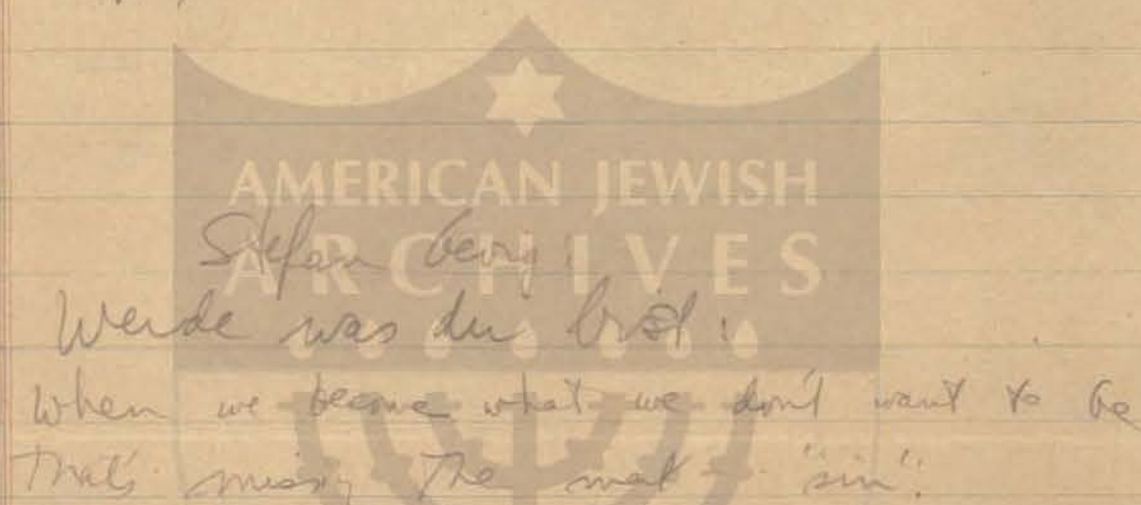 AMERICAN JEWISH
ARCHIVES
Stefan Georg:
Werde was du bist!
When we become what we don't want to be
that's missing the mark - "sin".